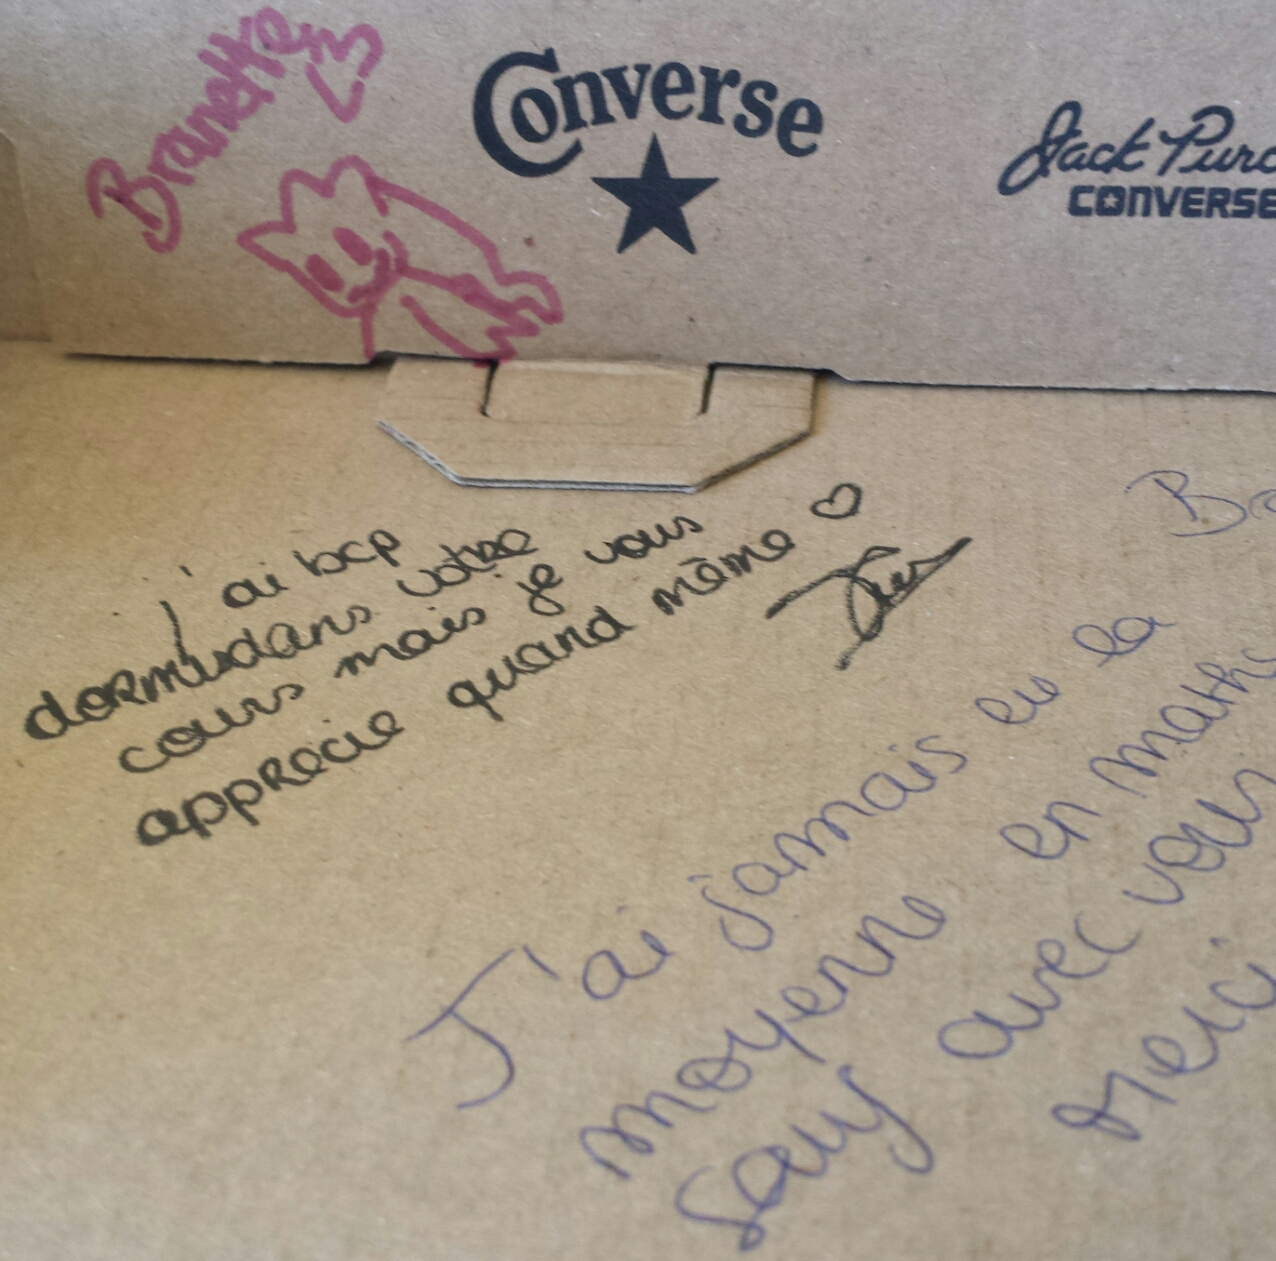 Branette
Converse
Jack Purc
CONVERSE
j'ai bcp
dormi dans votre
cours mais je vous
apprecie quand même
J'ai jamais eu la
moyenne en maths
sauf avec vous
merci